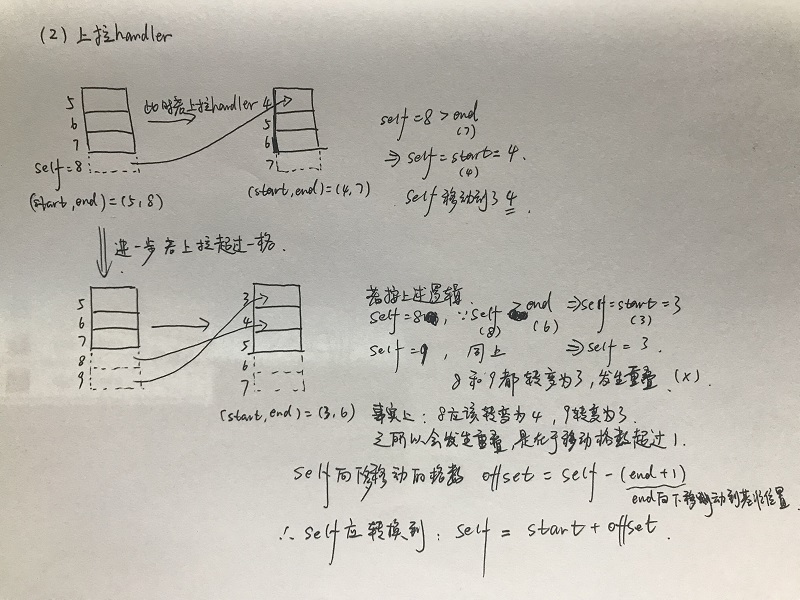 (2) 上拉handler
5
6
7
self=8
此时若上拉handler
4
5
6
7
(start,end)=(5,8)
(start,end)=(4,7)
self=8>end
(7)
⇒ self=start=4.
(4)
self移动到了4
进一步若上拉超过一格.
5
6
7
8
9
3
4
5
6
7
(start,end)=(3,6)
若按上述逻辑
self=8, ∵self>end ⇒self=start=3
(8) (6) (3)
self=9, 同上 ⇒self=3.
8和9都转变为了3,发生重叠.(×).
事实上:8应该转变为4,9转变为3.
之所以会发生重叠,是在于移动格数超过1.
self向下移动的格数 offset=self-(end+1)
end向下移动到基准位置
∴self应转换到: self=start+offset.